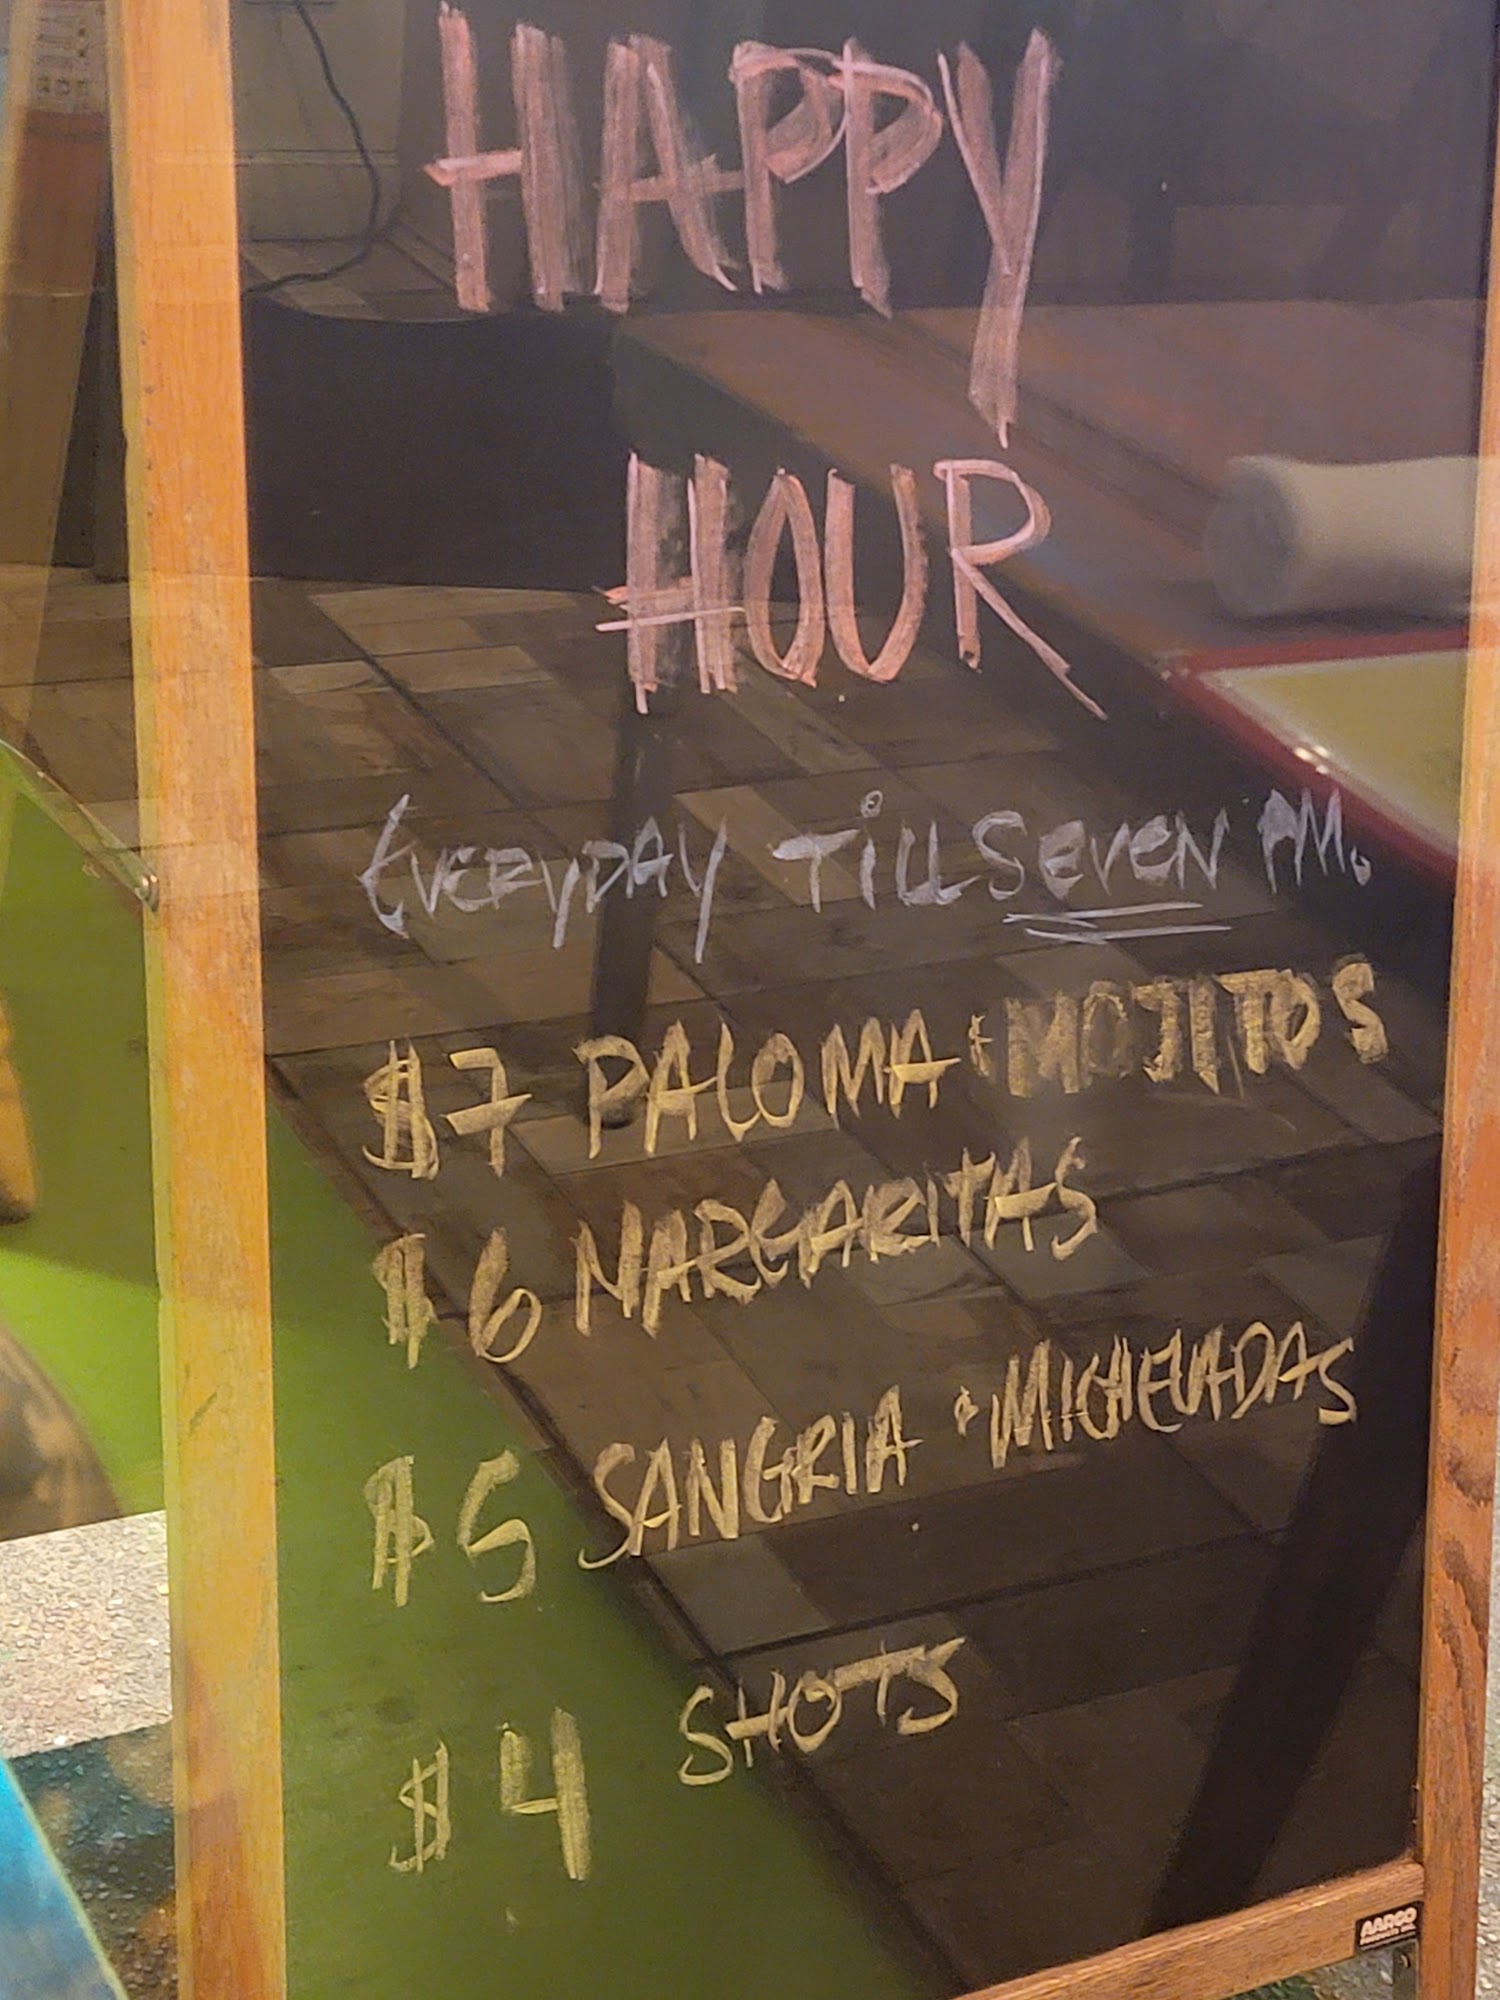 HAPPY
HOUR
EVERYDAY TiLL SEVEN PM.
$7 PALOMA & MOJITOS
$6 MARGARITAS
$5 SANGRIA & MICHELADAS
$4 SHOTS
AARCO
PRODUCTS, INC.